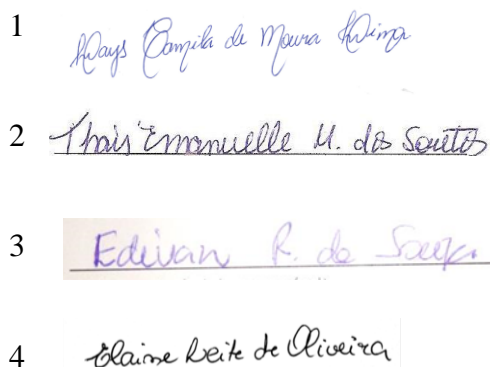 1 Camila de Moura
2 Thais Emanuelle M. dos Santos
3 Edivan R. de Souza
4 Elaine Leite de Oliveira